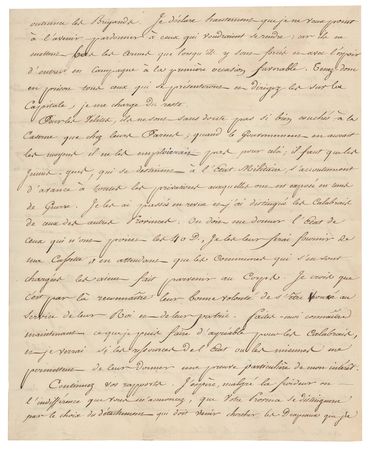 contenir les Brigands. Je déclare hautement que je ne veux point
à l'avenir pardonner à ceux qui voudraient se rendre; car ils ne
mettent bas les armes que lorsqu'ils y sont forcés et avec l'espoir
d'entrer en Campagne à la première occasion favorable. Tenez donc
en prison tous ceux qui se présenteront et dirigez les sur la
Capitale, je me charge du reste.
Pour les Vélites, ils ne sont sans doute pas si bien couchés à la
Caserne que chez leurs Parens; quand le Gouvernement en aurait
les moyens il ne les employerait pas pour cela; il faut que les
jeunes gens, qui se destinent à l'Etat Militaire, s'accoutument
d'avance à toutes les privations auxquelles on est exposé en tems
de Guerre. Je les ai passés en revue et j'ai distingué les Calabrais
de ceux des autres Provinces. On doit me donner l'Etat de
ceux qui n'ont pas les 40 D. Je les leur ferai fournir de
ma Cassette, en attendant que les Communes qui s'en sont
chargées les aient fait parvenir au Corps. Je crois que
c'est par là reconnaître leur bonne volonté de s'être voués au
service de leur Roi et de leur patrie. Faites-moi connaître
maintenant ce que je puis faire d'agréable pour les Calabrais,
et je verrai si les ressources de l'Etat ou les miennes me
permettent de leur donner une preuve particulière de mon intérêt.
Continuez vos rapports. J'espère, malgré la froideur et
l'indifférence que vous m'annoncez, que Votre Province se distinguera
par le choix du détachement qui doit venir chercher les Drapeaux que je